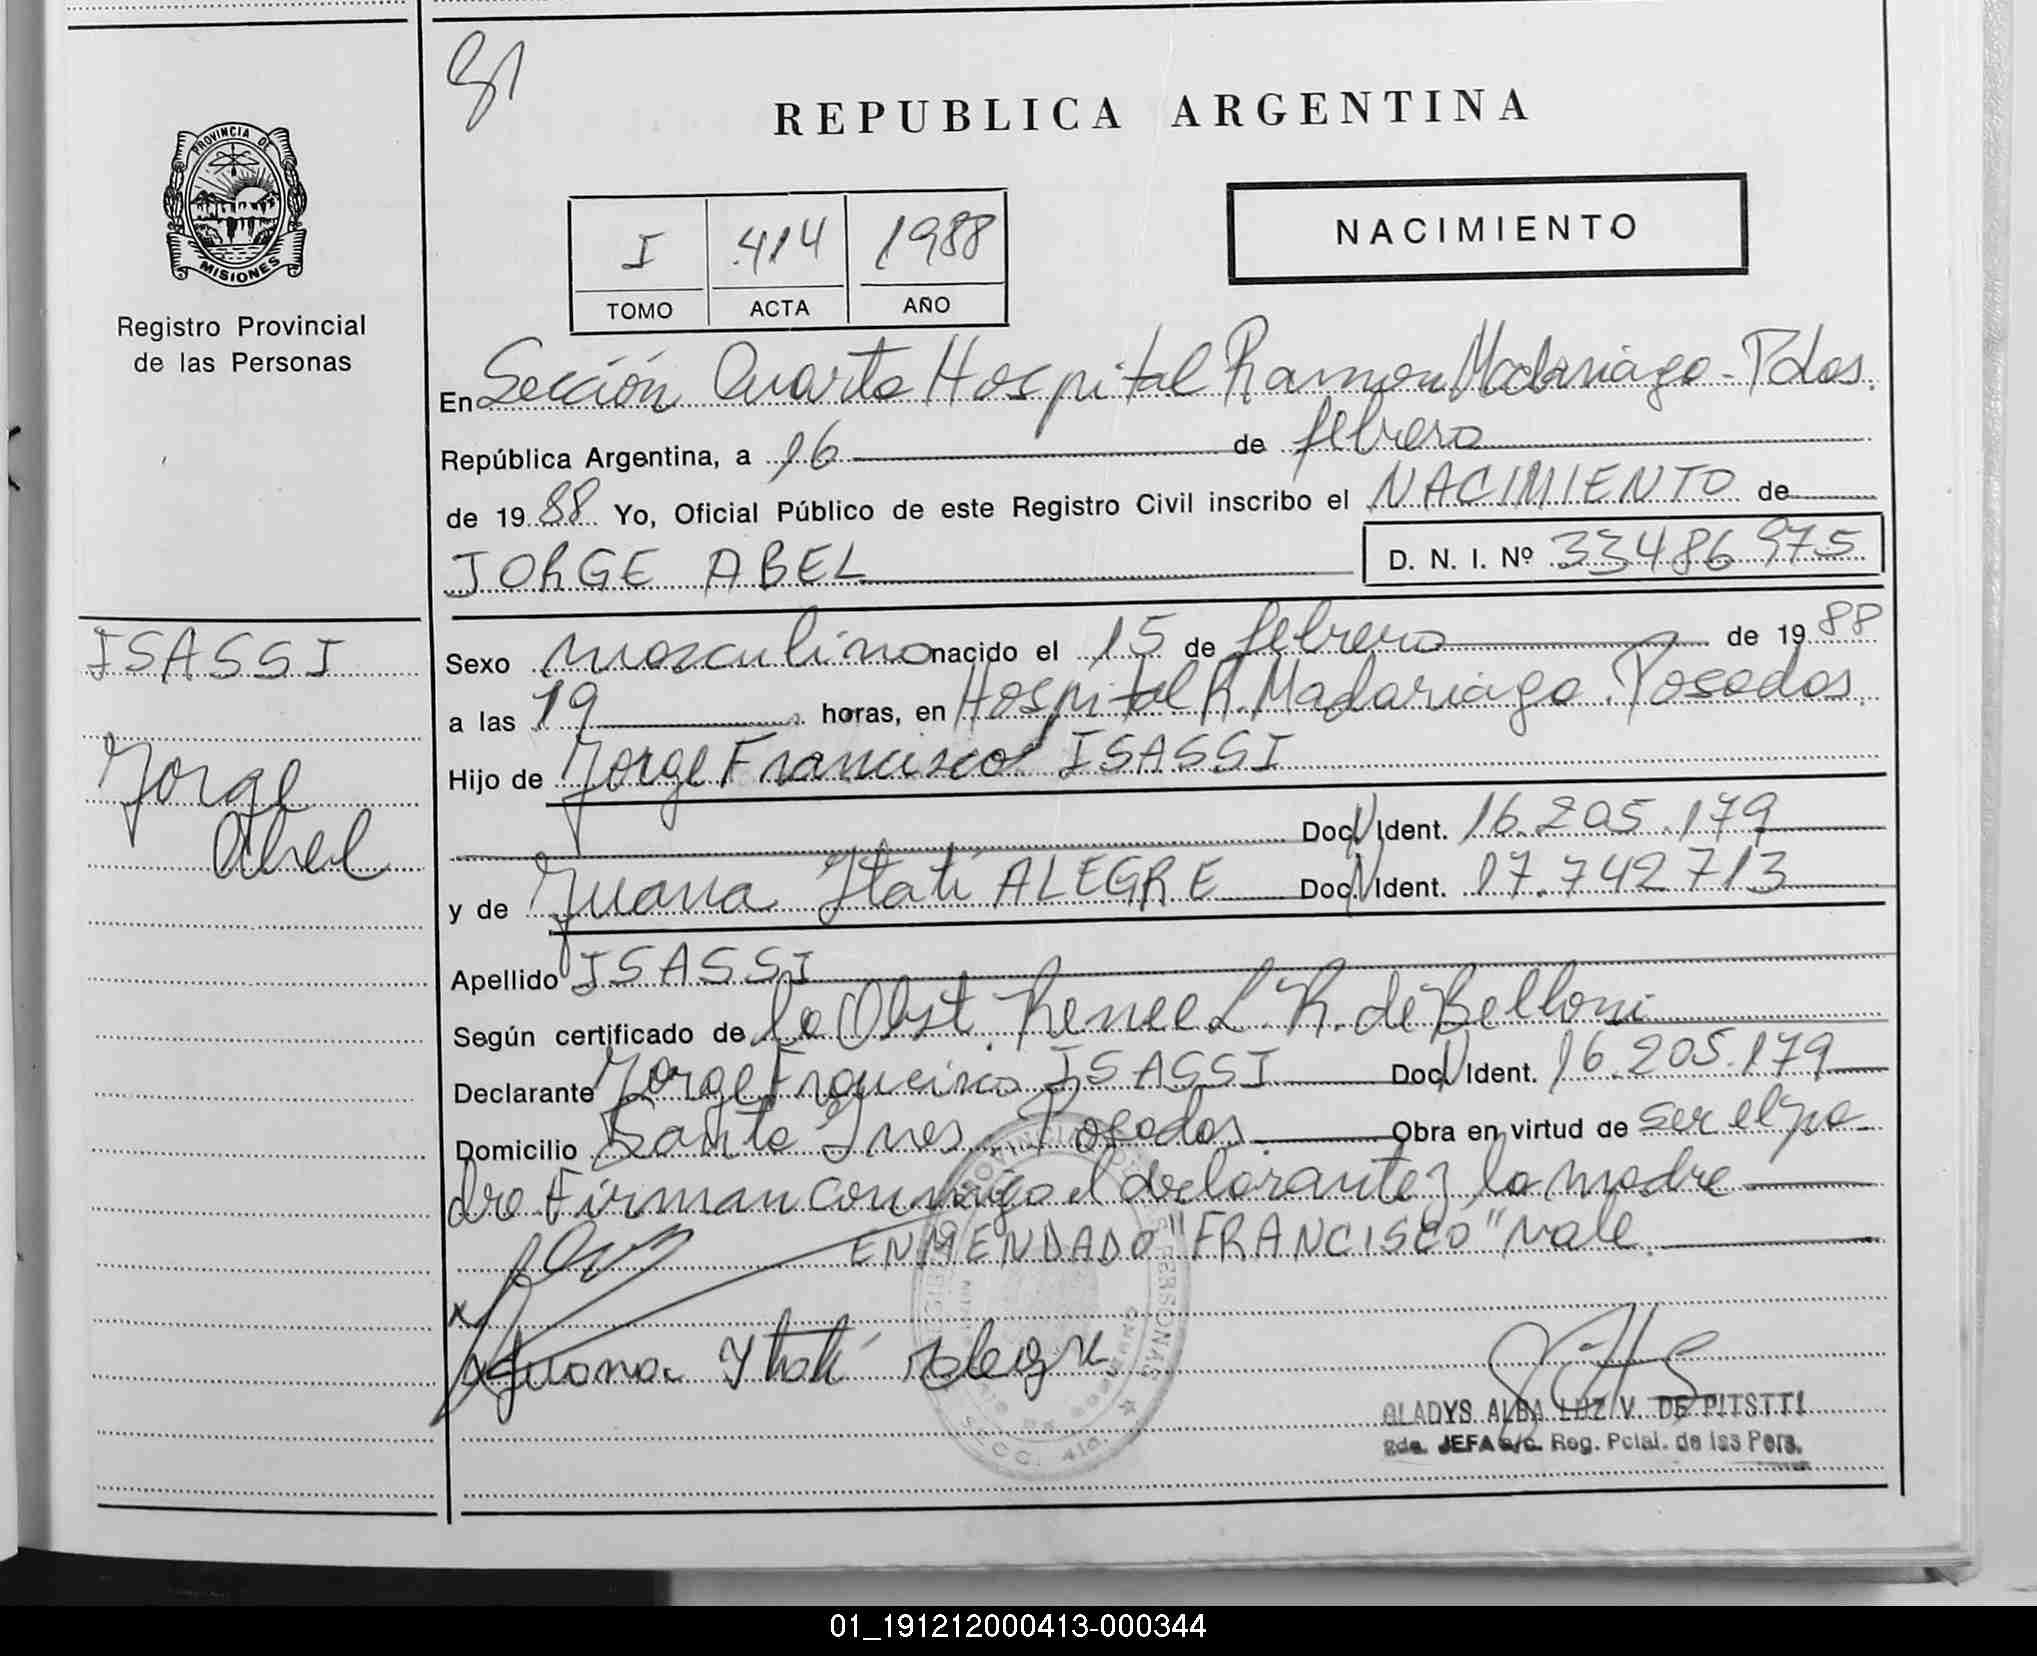 91
REPUBLICA ARGENTINA
PROVINCIA DE
MISIONES
Registro Provincial
de las Personas
NACIMIENTO
I 414 1988
TOMO ACTA AÑO
En Sección Cuarta Hospital Ramon Madariaga - Pdas.
República Argentina, a 16 de febrero
de 1988 Yo, Oficial Público de este Registro Civil inscribo el NACIMIENTO de
JORGE ABEL D. N. I. Nº 33486975
ISASSI
Jorge
Abel
Sexo masculino nacido el 15 de febrero de 1988
a las 19 horas, en Hospital R. Madariaga. Posadas.
Hijo de Jorge Francisco ISASSI
Doc. N Ident. 16.205.179
y de Juana Itatí ALEGRE Doc. N Ident. 17.742713
Apellido ISASSI
Según certificado de la Obst. Renee L. R. de Belloni
Declarante Jorge Francisco ISASSI Doc. N Ident. 16.205.179
Domicilio Santa Ines. Posadas. Obra en virtud de ser el pa-
dre. Firman conmigo el declarante y la madre
ENMENDADO "FRANCISCO" vale.
x
x Juana Ytatí Alegre
GLADYS ALBA LUZ V. DE PITSTTI
JEFA a/c. Reg. Pcial. de las Pers.
01_191212000413-000344